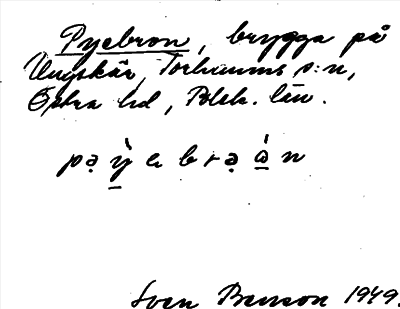 Pyebron, brygga på
Ungskär, Torhamns s:n,
Östra hd, Blek. län.
pạỳebrạạ̀n
Sven Benson 1949.